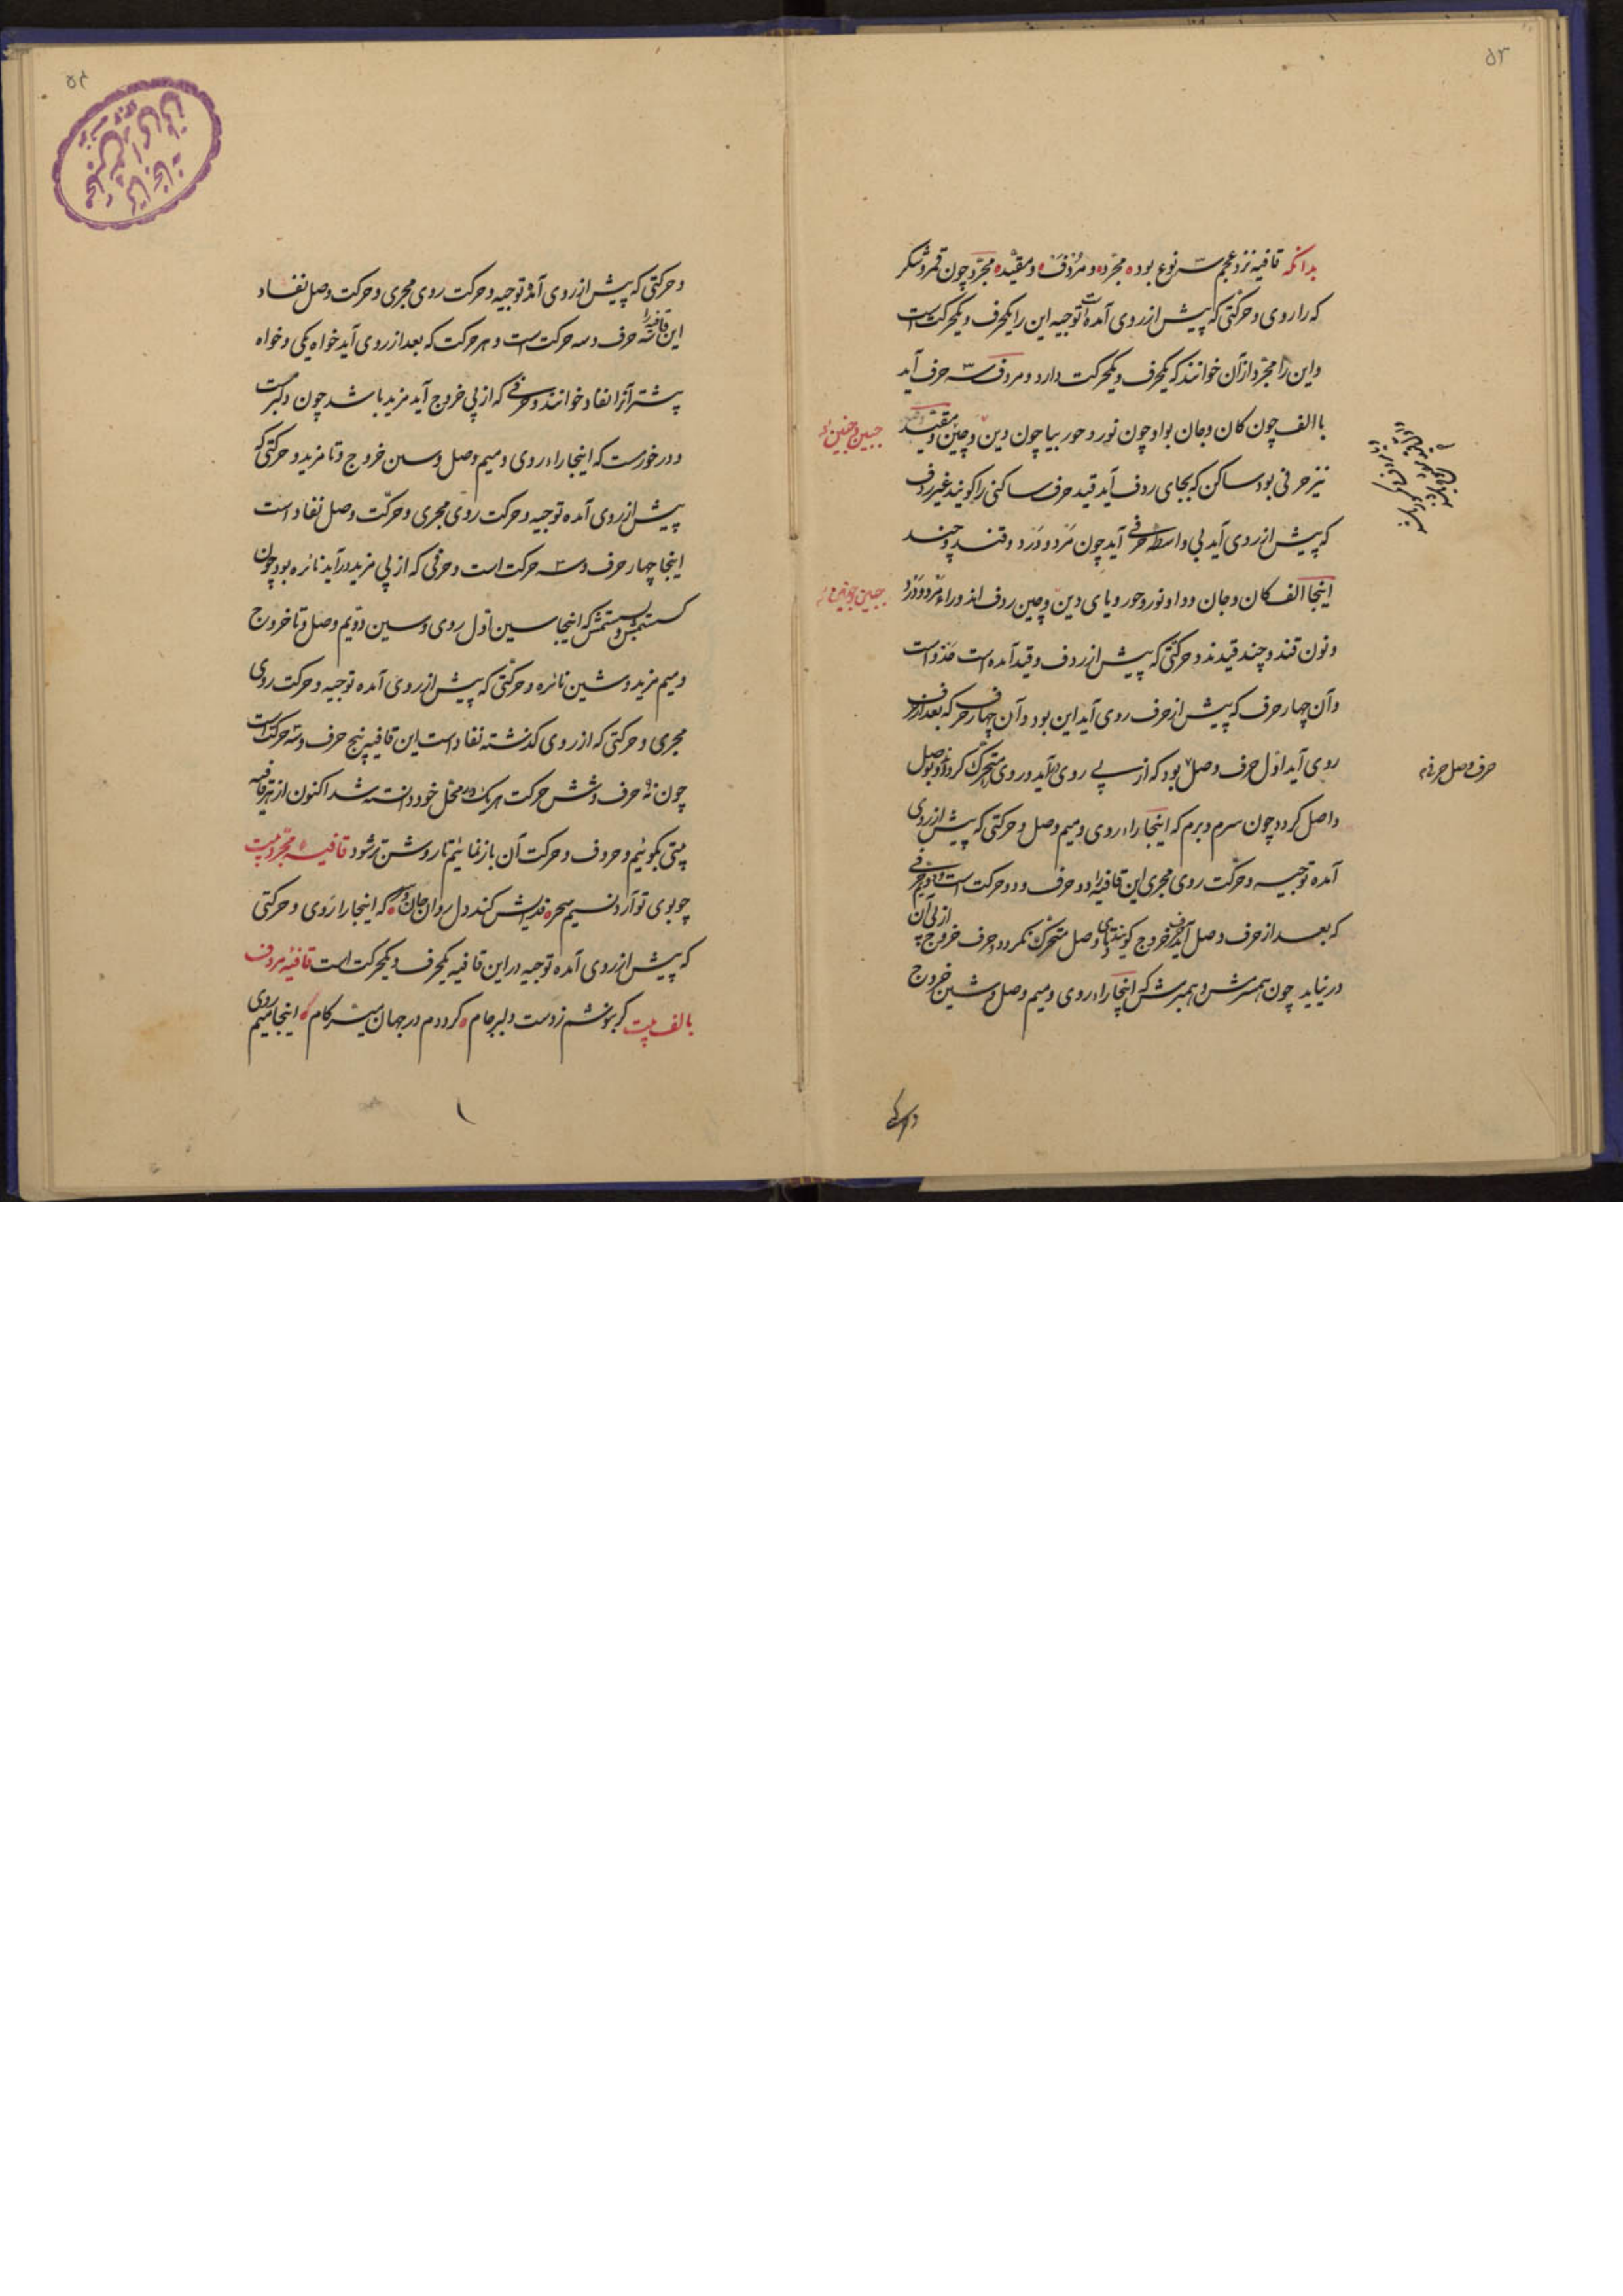 ۵۳
بدانکه قافیه نزد عجم سه نوع بود مجرّده و مُردَفَه و مقیّده مجرّد چون قمر و شکر
که را روی و حرکتی که پیش از روی آمده است توجیه این را یکحرف و یکحرکت است
و این را مجرّد از آن خوانند که یکحرف و یکحرکت دارد و مردف سه حرف آید
با الف چون کان و جان بواو چون نور و حور بیا چون دین و چین و مقیّد
نیز حرفی بود ساکن که بجای ردف آید قید حرف ساکنی را کویند غیر ردف
که پیش از روی آید بی واسطه حرفی آید چون مَرد و دَرد و قند و چند
اینجا الف کان و جان و واو نور و حور و یای دین و چین ردف اند و راء مَرد و دَرد
و نون قند و چند قیدند و حرکتی که پیش از ردف و قید آمده است حذو است
و آن چهار حرف که پیش از حرف روی آید این بود و آن چهار حرف که بعد از حرف
روی آید اوّل حرف وصل بود که از پی روی در آید و روی متحرّک کردد و بوصل
واصل کردد چون سرم و برم که اینجا راء روی و میم وصل و حرکتی که پیش از روی
آمده توجیه و حرکت روی مجری این قافیه را دو حرف و دو حرکت است و حرفی
که بعد از حرف وصل آید حرف خروج کویند تا های وصل متحرّک نکردد حرف خروج از پی آن
در نیاید چون همسرش و همبرش که اینجا راء روی و میم وصل و شین خروج
جبین و جنین
حرف وصل حرفی
۵۴
و حرکتی که پیش از روی آمده توجیه و حرکت روی مجری و حرکت وصل نفاد
این قافیه را سه حرف و سه حرکت است و هر حرکت که بعد از روی آید خواه یکی و خواه
بیشتر آنرا نفاد خوانند و حرفی که از پی خروج آید مزید باشد چون دلبرمست
و درخورمست که اینجا راء روی و میم وصل و سین خروج و تا مزید و حرکتی که
پیش از روی آمده توجیه و حرکت روی مجری و حرکت وصل نفاد است
اینجا چهار حرف و سه حرکت است و حرفی که از پی مزید در آید نائره بود چون
که اینجا سین اوّل روی و سین دوّیم وصل و تا خروج
و میم مزید و شین نائره و حرکتی که پیش از روی آمده توجیه و حرکت روی
مجری و حرکتی که از روی کذشته نفاد است این قافیه پنج حرف و سه حرکت است
چون نه حرف و شش حرکت هریک در محلّ خود دانسته شد اکنون از هر قافیه
بیتی بکوئیم و حروف و حرکت آن باز نمائیم تا روشن تر شود قافیه مجرّد بیت
چو بوی تو آرد نسیم سحر فدایش کند دل روان جان و سر که اینجا را روی و حرکتی
که پیش از روی آمده توجیه در این قافیه یکحرف و یکحرکت است قافیه مردف
بالف بیت کر بنوشم ز دست دلبر جام کردم در جهان میسّر کام اینجا میم روی